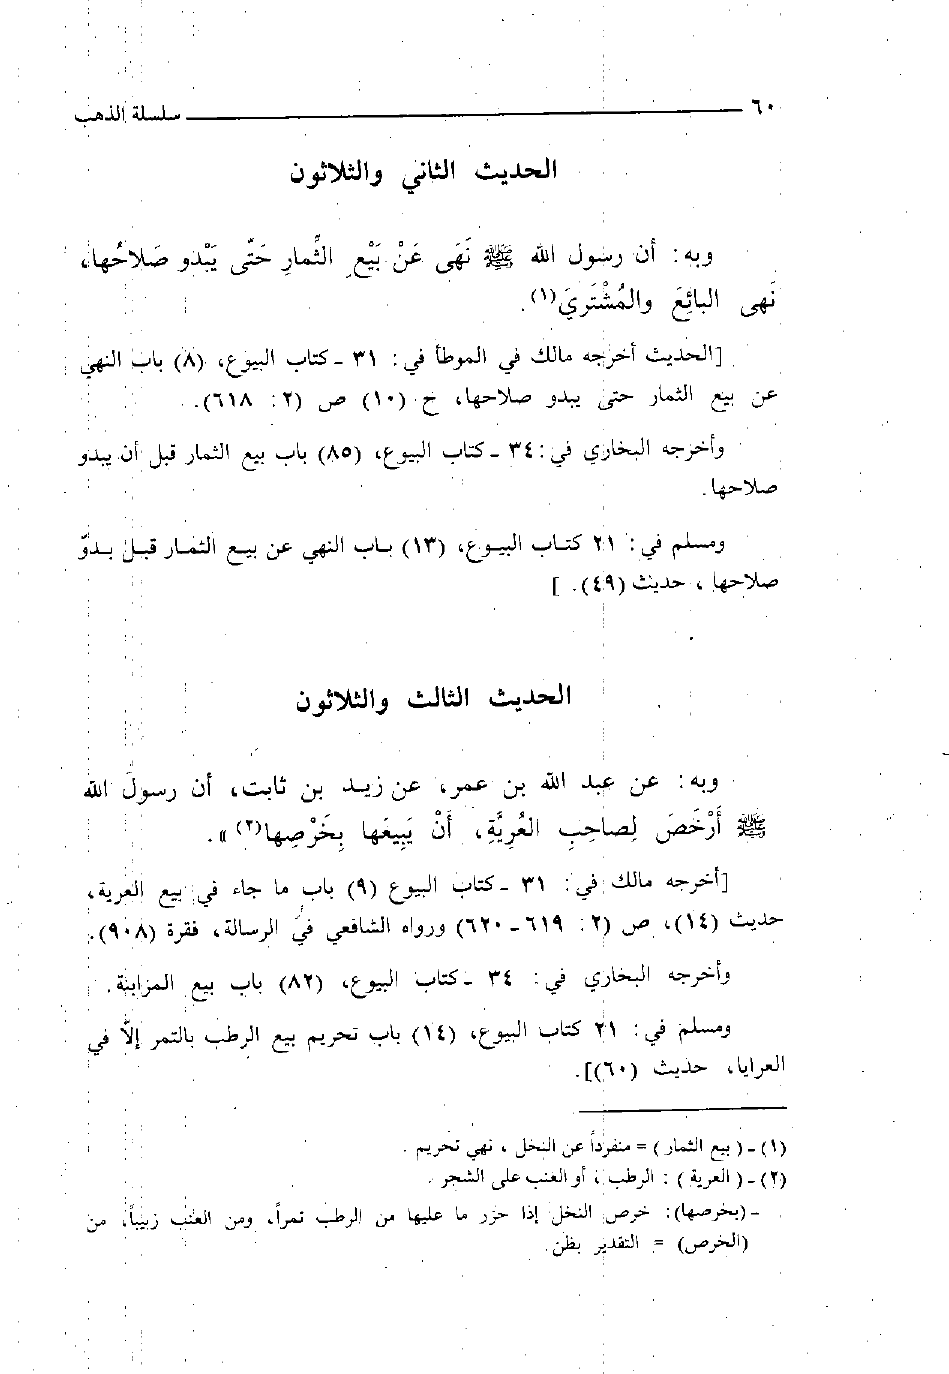 ٦٠ سلسلة الذهب
الحديث الثاني والثلاثون
وبه: أن رسول الله ﷺ نَهَى عَنْ بَيْعِ الثِّمارِ حَتّى يَبْدو صَلاحُها،
نَهى البائِعَ والمُشْتَريَ(١).
[الحديث أخرجه مالك في الموطأ في: ٣١ ـ كتاب البيوع، (٨) باب النهي
عن بيع الثمار حتى يبدو صلاحها، ح (١٠) ص (٢: ٦١٨).
وأخرجه البخاري في: ٣٤ ـ كتاب البيوع، (٨٥) باب بيع الثمار قبل أن يبدو
صلاحها.
ومسلم في: ٢١ كتاب البيوع، (١٣) باب النهي عن بيع الثمار قبل بدوّ
صلاحها ، حديث (٤٩). ]
الحديث الثالث والثلاثون
وبه: عن عبد الله بن عمر، عن زيد بن ثابت، أن رسولَ الله
ﷺ أَرْخَصَ لِصاحِبِ العُرِيَّةِ، أَنْ يَبِيعَها بِخَرْصِها(٢) ».
[أخرجه مالك في: ٣١ ـ كتاب البيوع (٩) باب ما جاء في بيع العرية،
حديث (١٤)، ص (٢: ٦١٩ ـ ٦٢٠) ورواه الشافعي في الرسالة، فقرة (٩٠٨).
وأخرجه البخاري في: ٣٤ ـ كتاب البيوع، (٨٢) باب بيع المزابنة.
ومسلم في: ٢١ كتاب البيوع، (١٤) باب تحريم بيع الرطب بالتمر إلاَّ في
العرايا، حديث (٦٠)].
(١) ـ ( بيع الثمار ) = منفرداً عن النخل ، نهي تحريم .
(٢) ـ ( العرية ) : الرطب ، أو العنب على الشجر .
ـ (بخرصها): خرص النخل إذا حزر ما عليها من الرطب تمراً، ومن العنب زبيباً، من
(الخرص) = التقدير بظن.